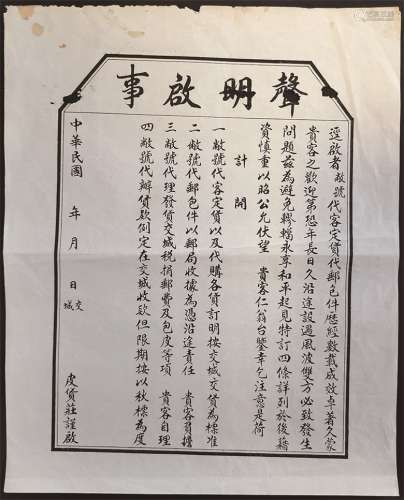 聲明啟事
逕啟者敝號代客定貨代郵包件歷經數載成效卓著久蒙
貴客之歡迎第恐年長日久沿途設遇風波雙方必致發生
問題茲為避免轇轕永享和平起見特訂四條詳列於後藉
資慎重以昭公允伏望　貴客仁翁台鑒幸乞注意是荷
計開
一 敝號代客定貨以及代購各貨訂明按交城交貨為標准
二 敝號代郵包件以郵局收據為憑沿途責任　貴客負擔
三 敝號代理發貨交城稅捐郵費及包皮等項　貴客自理
四 敝號代辦貨款例定在交城收款但限期按以秋標為度
中華民國　年　月　日 交城　皮貨莊謹啟